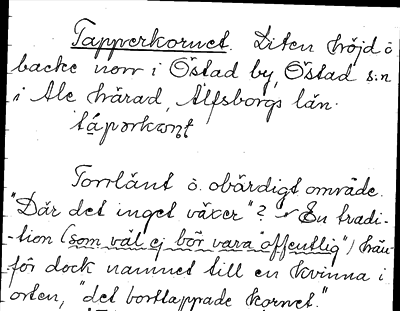 Tapperkornet. Liten höjd ö
backe norr i Östad by, Östad s:n
i Ale härad, Älfsborgs län.
tápərkωṇt
Torrländt o. obördigt område.
"Där det inget växer"? En tradi-
-tion (som väl ej bör vara "offentlig") hän-
för dock namnet till en kvinna i
orten, "det borttappade kornet."